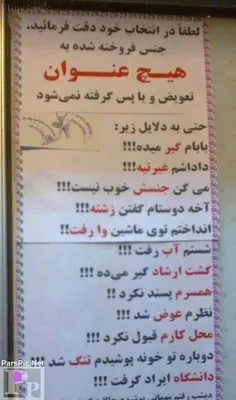 لطفاً در انتخاب خود دقت فرمائید.
جنس فروخته شده به
هیچ عنوان
تعویض و یا پس گرفته نمی‌شود
حتی به دلایل زیر:
بابام گیر میده!!!
داداشم غیرتیه!!!
می گن جنسش خوب نیست!!!
آخه دوستام گفتن زشته!!!
انداختم توی ماشین وا رفت!!
شستم آب رفت !!!
گشت ارشاد گیر می‌ده !!!
همسرم پسند نکرد !!
نظرم عوض شد !!!
محل کارم قبول نکرد !!!
دوباره تو خونه پوشیدم تنگ شد !!!
دانشگاه ایراد گرفت !!!
دیشب رفتم مهمانی پوشیدم
ParsPic.Net